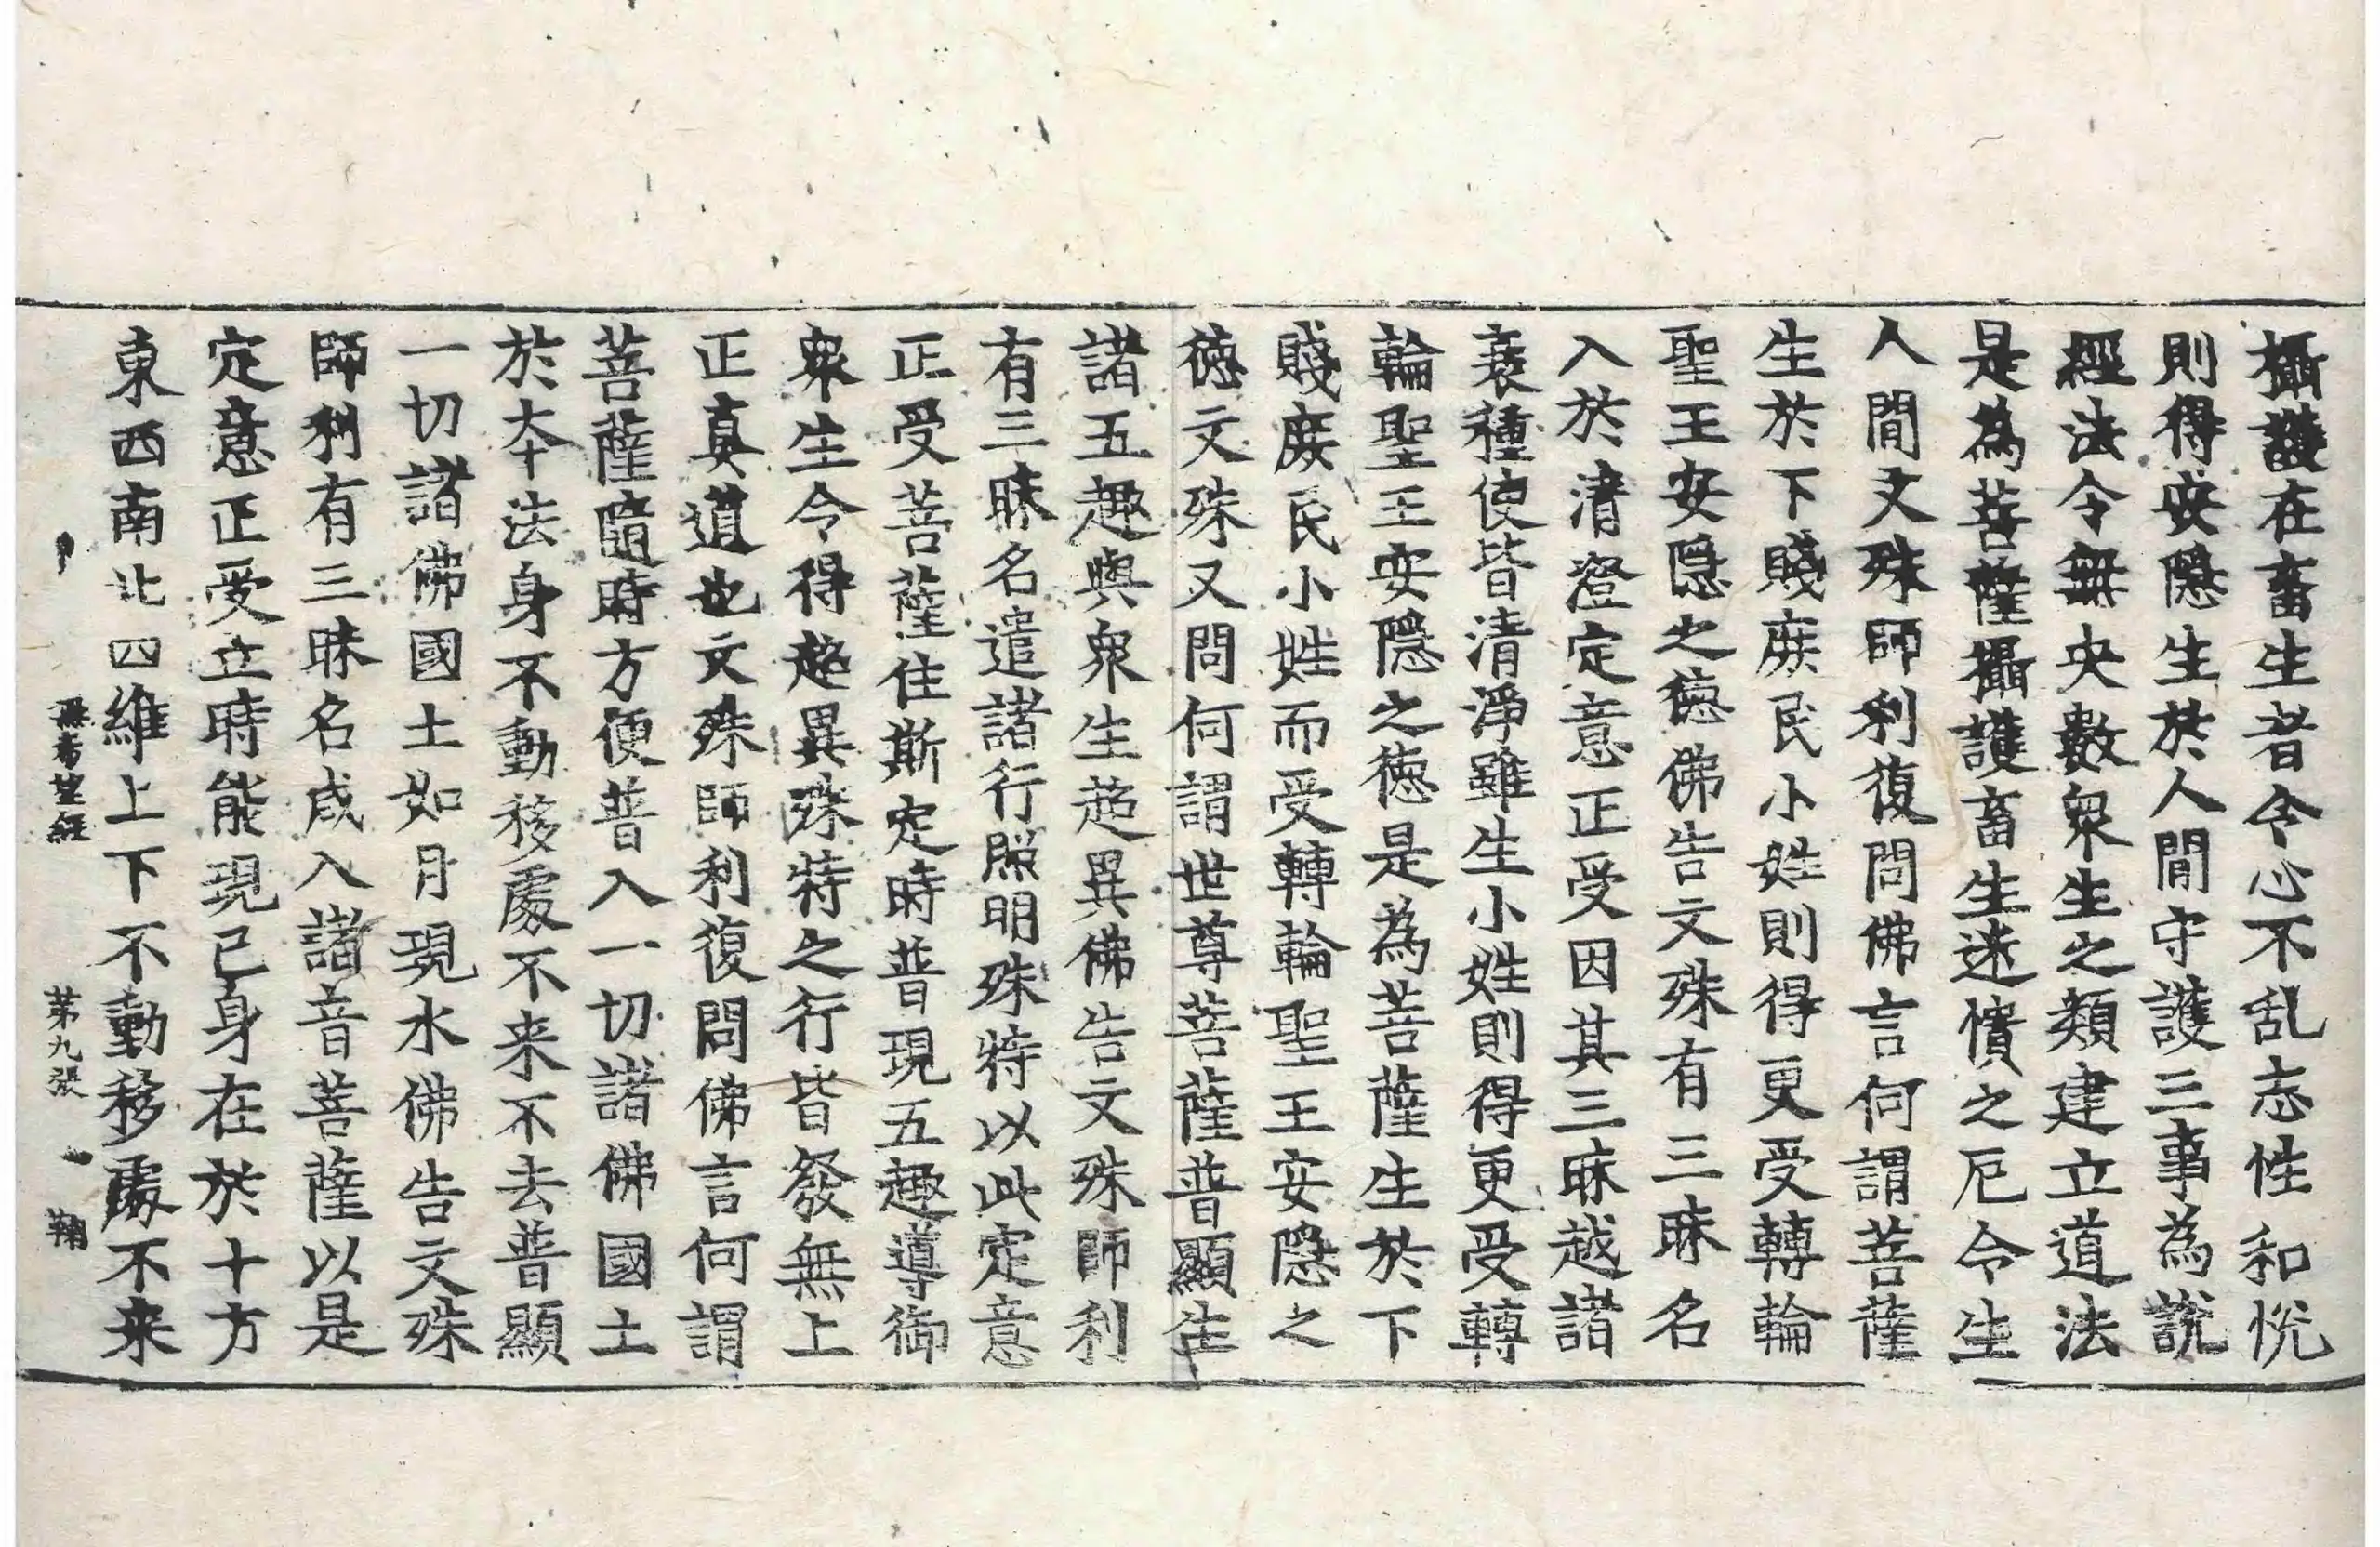 攝護在畜生者令心不乱志性和悅
則得安隱生於人間守護三事為說
經法令無央數衆生之類建立道法
是為菩薩攝護畜生迷憒之厄令生
人間文殊師利復問佛言何謂菩薩
生於下賤廢民小姓則得更受轉輪
聖王安隱之德佛告文殊有三昧名
入於清澄定意正受因其三昧越諸
衰種使皆清淨雖生小姓則得更受轉
輪聖王安隱之德是為菩薩生於下
賤廢民小姓而受轉輪聖王安隱之
德文殊又問何謂世尊菩薩普顯生
諸五趣與衆生超異佛告文殊師利
有三昧名遣諸行照明殊特以此定意
正受菩薩住斯定時普現五趣導御
衆生令得超異殊特之行皆發無上
正真道也文殊師利復問佛言何謂
菩薩隨時方便普入一切諸佛國土
於夲法身不動移處不来不去普顯
一切諸佛國土如月現水佛告文殊
師利有三昧名咸入諸音菩薩以是
定意正受立時能現己身在於十方
東西南北四維上下不動移處不来
無希望經　第九張　鞠